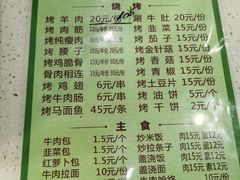 烧 烤
烤羊肉 20元/份
涮牛肚 20元/份
烤肉筋
烤韭菜 15元/份
烤纯瘦肉
烤茄子 15元/份
烤腰子
烤金针菇 15元/份
烤鸡脆骨
烤香菇 15元/份
骨肉相连
烤青椒 15元/份
烤鸡翅 6元/串
烤土豆片 15元/份
烤牛肉肠 6元/串
烤油饼 5元/个
烤马面鱼 45元/条
烤干饼 2元/个
主 食
牛肉包 1.5元/个
炒米饭 肉15元 蛋12元
韭菜包 1.5元/个
炒拉条子 肉15元 素12元
红萝卜包 1.5元/个
盖浇饭 肉15元 素12元
牛肉拉面 10元/份
盖浇面 肉15元 素12元